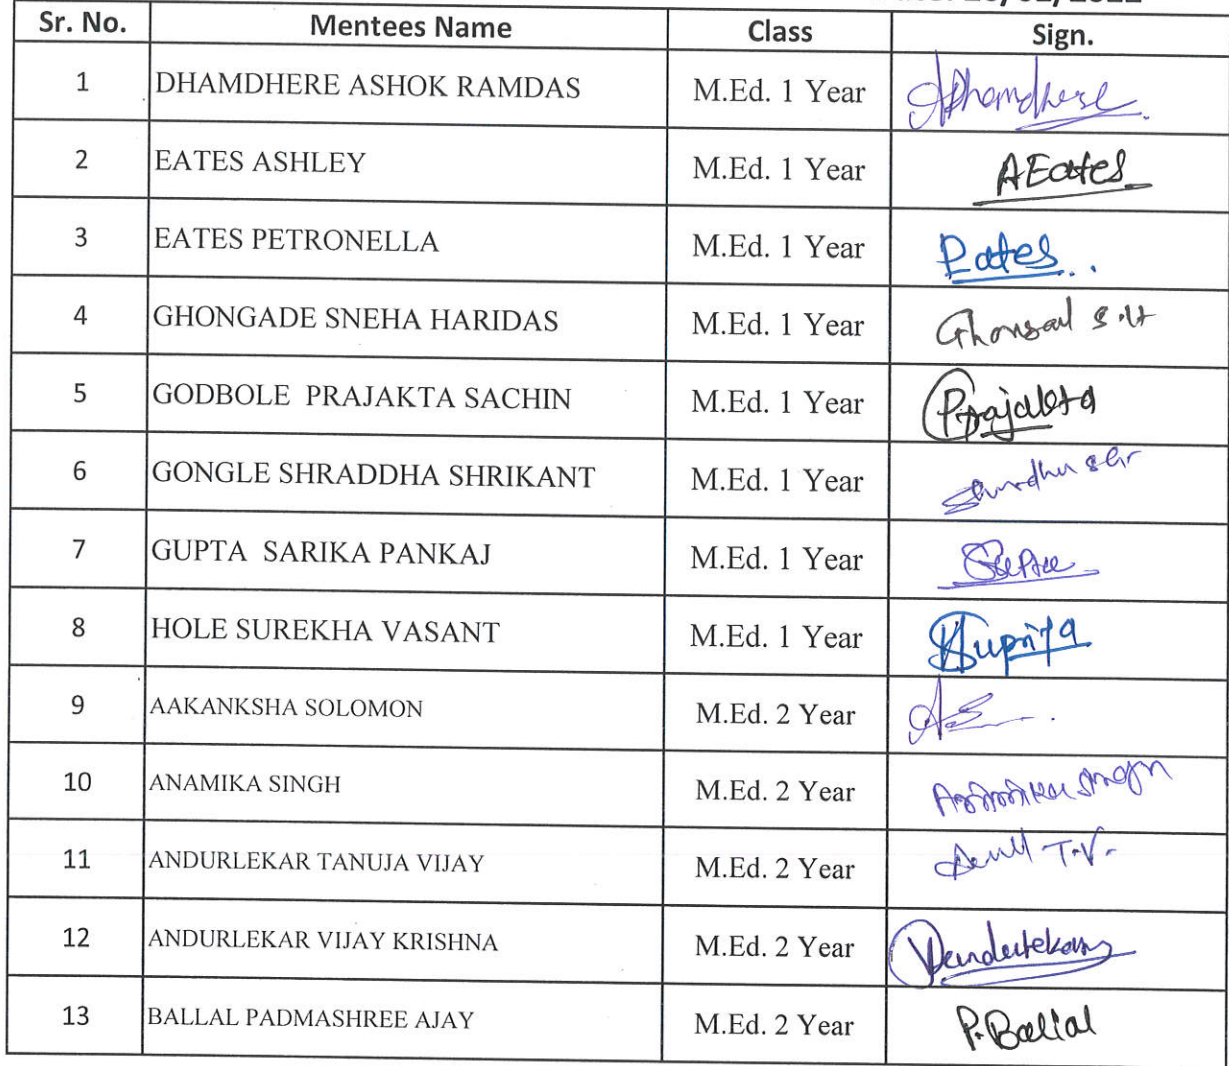 Sr. No. Mentees Name Class Sign.
1 DHAMDHERE ASHOK RAMDAS M.Ed. 1 Year Dhamdhere
2 EATES ASHLEY M.Ed. 1 Year AEates
3 EATES PETRONELLA M.Ed. 1 Year Eates
4 GHONGADE SNEHA HARIDAS M.Ed. 1 Year S.H
5 GODBOLE PRAJAKTA SACHIN M.Ed. 1 Year Prajakta
6 GONGLE SHRADDHA SHRIKANT M.Ed. 1 Year
7 GUPTA SARIKA PANKAJ M.Ed. 1 Year
8 HOLE SUREKHA VASANT M.Ed. 1 Year Supriya
9 AAKANKSHA SOLOMON M.Ed. 2 Year
10 ANAMIKA SINGH M.Ed. 2 Year Anamika Singh
11 ANDURLEKAR TANUJA VIJAY M.Ed. 2 Year T.V.
12 ANDURLEKAR VIJAY KRISHNA M.Ed. 2 Year
13 BALLAL PADMASHREE AJAY M.Ed. 2 Year P. Ballal